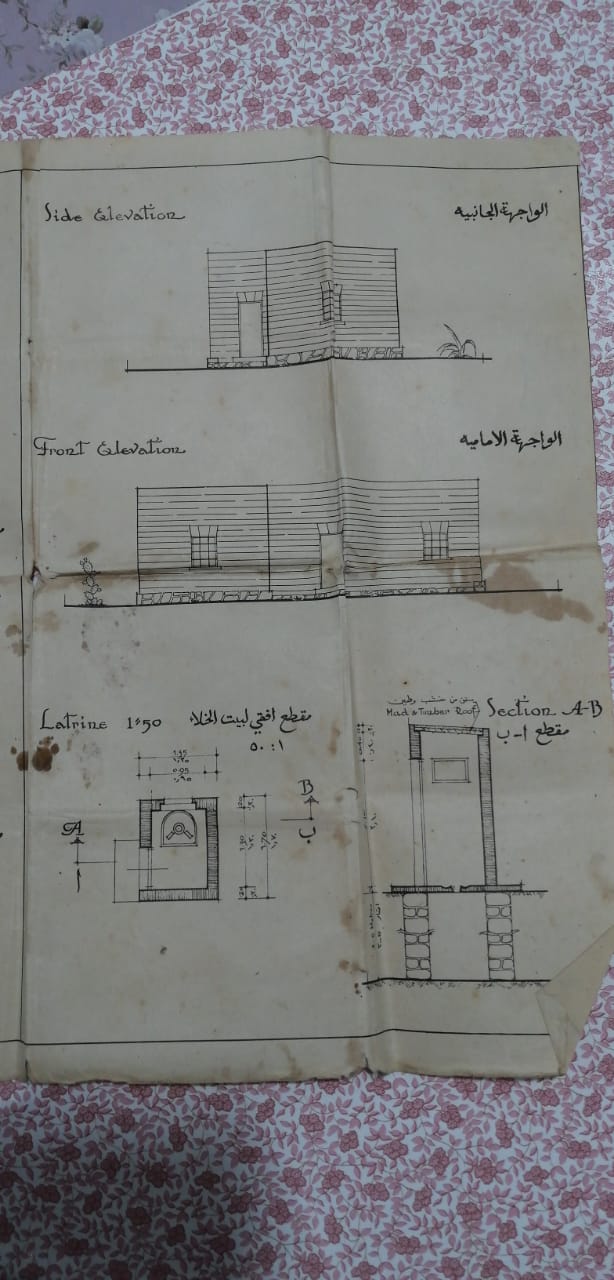 Side Elevation
الواجهة الجانبيه
Front Elevation
الواجهة الاماميه
Latrine 1:50
مقطع افقي لبيت الخلاء
١ : ٥٠
سقف من خشب وطين
Mud & Timber Roof
Section A-B
مقطع أ - ب
A
أ
B
ب